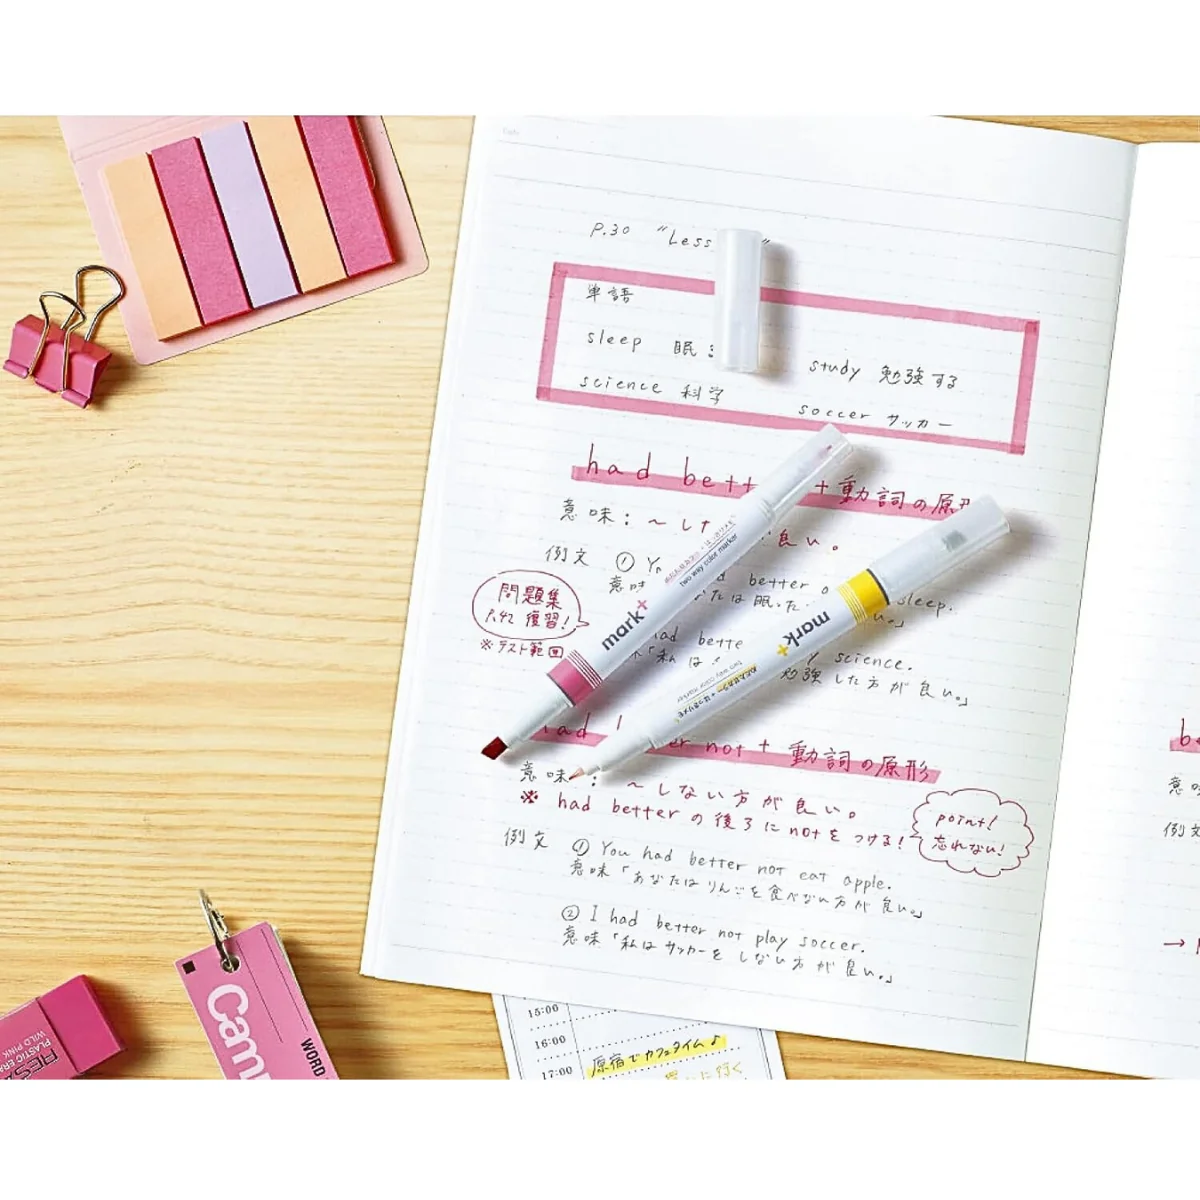 P.30 "Less
単語
sleep 眠
study 勉強する
science 科学
soccer サッカー
had bett + 動詞の原形
意味：〜した 良い。
例文 ① Y better sleep.
意味 たは眠った 。」
問題集
P.42 復習!
※テスト範囲
had bette y science.
「私は 勉強した方が良い。」
ad er not + 動詞の原形
意味：〜しない方が良い。
※ had better の後ろに not をつける!
point!
忘れない!
例文 ① You had better not eat apple.
意味「あなたはりんごを食べない方が良い。」
② I had better not play soccer.
意味「私はサッカーをしない方が良い。」
mark+
two way color marker
mark+
two way color marker
15:00
16:00
原宿でカフェタイム♪
17:00
に行く
Cam
WORD
PLASTIC ERA
WILD PINK
RES
意味
例文